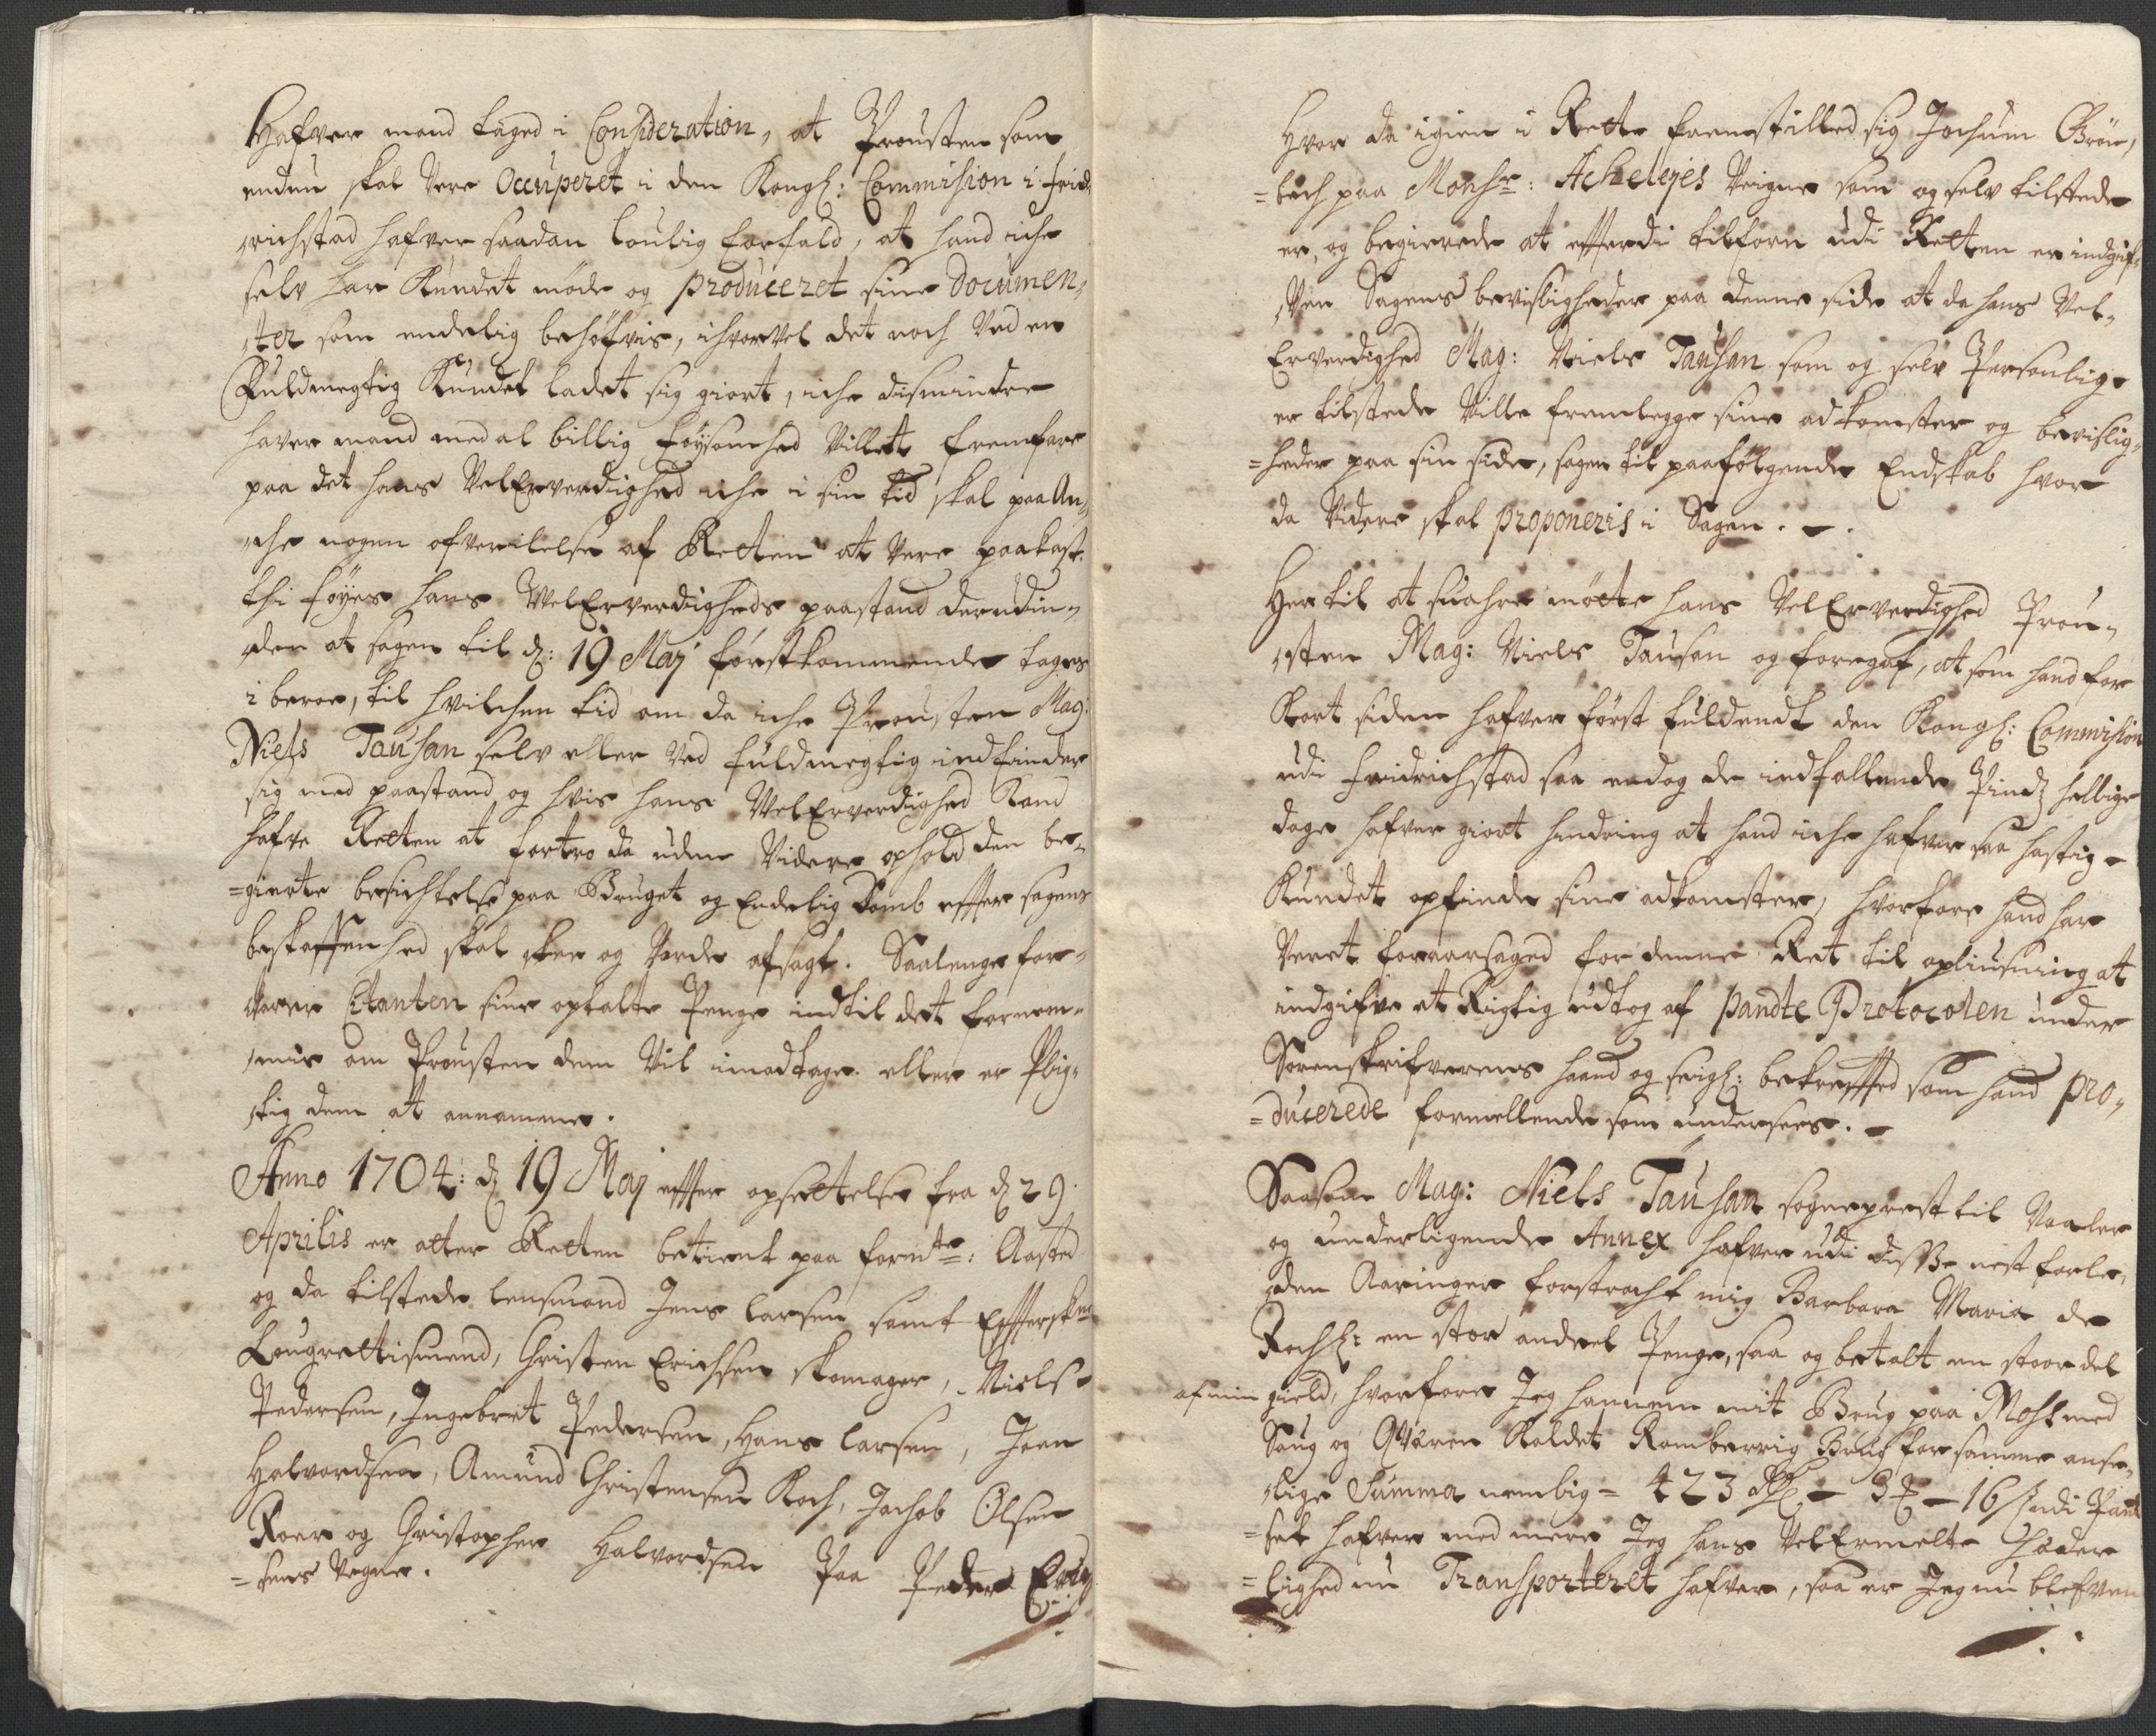 Hafver mand taged i Consideration, at Prousten som
endnu skal Vere Occuperet i den Kongl: Commision i Frid-
richstad hafver saadan loulig forfald, at hand iche
selv har Kundet møde og produceret sine Documen-
ter som endelig behøfvis, ihvorvel det noch Ved en
Fuldmegtig Kundet ladet sig giort, iche disminder
haver mand med al billig føysomhed Villett fremfare
paa det hans VelErverdighed iche i sin tid skal paa An-
che nogen ofverilelse af Retten at Vere paakast.
thi føyes hans WelErverdigheds paastand derudin-
den at sagen til d: 19 Maj førstkommende tages
i beroe, til hvilchen tid om da iche Prousten Mag:
Niels Tausan selv eller Ved fuldmegtig indfinder
sig med paastand og hvis hans WelErverdighed Kand
hafve Retten at fortro da uden Videre ophold den be-
=gierte besichtelse paa Bruget og Endelig Domb effter sagens
beskaffenhed skal skee og Vorde afsagt. Saalenge for-
varer Citanten sine optalte Penge indtil det fornem-
mis om Prousten dem Vil imodtage eller er Plig-
tig dem at annamme.
Anno 1704: d 19 Maj effter opsettelse fra d 29
Aprilis er atter Retten betient paa formte: Aasted
og da tilstede lensmand Jens larsen samt Effterskne
Lougrettismend, Christen Erichsen skomager, Niels
Pedersen, Ingebret Pedersen, Hans larsen, Joen
Halvordsen, Amund Christensen Koch, Jachob Olsen
Roer og Christopher Halvordsen Paa Peder Erig
=sens Vegne.
Hvor da igien i Rette fremstilled sig Jochum Brøn,
=bech paa Monsr: Acheleyes Veigne som og selv tilstede
er, og begierede at efferdi tilforn udi Retten er indgif-
ven Sagens bevisligheder paa denne side at da hans Vel-
Erverdighed Mag: Niels Tausan som og selv Personlige
er tilstede Ville fremlegge sine adkomster og bevislig-
=heder paa sin side, sagen til paafølgende Endskab hvor
da Videre skal proponeris i Sagen.
Her til at suahre møtte hans VelErverdighed Prou-
sten Mag: Niels Tausan og foregaf, at som hand for
Kort siden hafver først fuldendt den Kongl: Commision
udi Fridrichstad saa endog de indfallende Pindz hellige
dage hafver giort hindring at hand iche hafver saa hastig
Kundet opfinde sine adkomster, hvorfore hand har
Veret foraarsaged for denne Ret til opliusning at
indgifve et Rigtig udtog af pandte Protocolen under
Sorenskrifverens haand og seigl: bekreffted som hand pro-
=ducerede formellende som undersees.
Saasom Mag: Niels Tausan sogneprest til Vaaler
og underligende Annex hafver udi disse nest forle-
den Aaringer forstracht mig Barbara Maria de
Rochl: en stor andeel Penge, saa og betalt en stoor del
af min gield, hvorfore Jeg hannem mit Brug paa Mohs med
Saug og Qværn Kaldet Romberrig Brug for samme anse-
lige Summa nemblig = 423 Rd - 3 - 16 s udi Pant
=sat hafver med mere Jeg hans VelErmelte Hæder
=lighed nu Transporteret hafver, saa er Jeg nu blefven